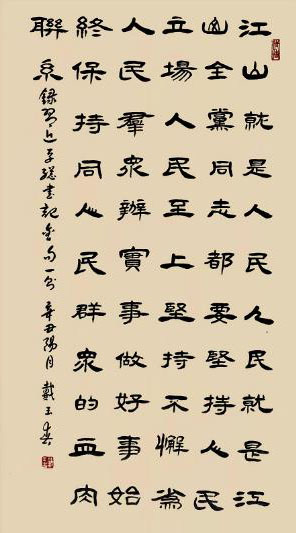 江山就是人民人民就是江
山全黨同志都要堅持人民
立場人民至上堅持不懈為
人民羣衆辦實事做好事始
終保持同人民群衆的血肉
聯系 錄習近平總書記金句一則 辛丑陽月 戴玉春